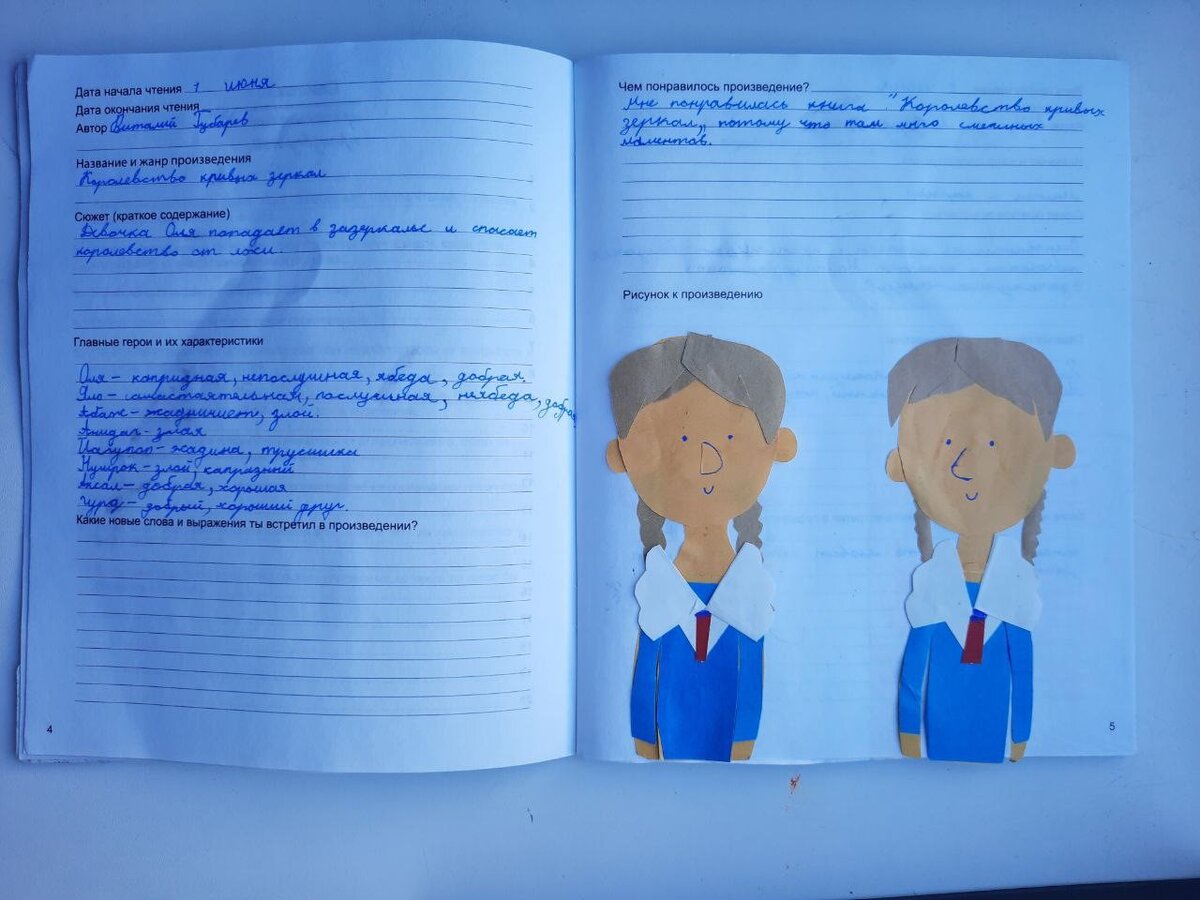 Дата начала чтения 1 июня
Дата окончания чтения
Автор Виталий Губарев
Название и жанр произведения
Королевство кривых зеркал
Сюжет (краткое содержание)
Девочка Оля попадает в зазеркалье и спасает
королевство от лжи.
Главные герои и их характеристики
Оля – капризная, непослушная, ябеда, добрая.
Яло – самостоятельная, послушная, неябеда, добрая
Абаж – жадничает, злой.
Анидаг – злая
Йагупоп – жадина, трусишка
Нушрок – злой, капразный
Аксал – добрая, хорошая
Гурд – добрый, хороший друг.
Какие новые слова и выражения ты встретил в произведении?
4
Чем понравилось произведение?
Мне понравилась книга "Королевство кривых
зеркал„, потому что там много смешных
моментов.
Рисунок к произведению
5